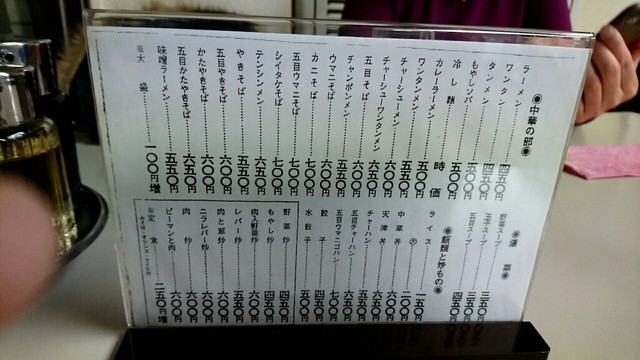 ◉中華の部◉
ラーメン 四五〇円
ワンタン 四五〇円
タンメン 五五〇円
もやしソバ 五〇〇円
冷し麺 時価
カレーラーメン 五〇〇円
ワンタンメン 五五〇円
チャーシューメン 六〇〇円
チャーシューワンタンメン 六〇〇円
五目そば 五五〇円
チャンポンメン 六五〇円
ウマニそば 六〇〇円
カニそば 七〇〇円
五目ウマニそば 七〇〇円
シイタケそば 五〇〇円
テンシンメン 六五〇円
やきそば 五五〇円
五目やきそば 六〇〇円
かたやきそば 六〇〇円
五目かたやきそば 六五〇円
味噌ラーメン 五五〇円
※大盛 一〇〇円増
◉湯菜◉
野菜スープ 三五〇円
玉子スープ 三五〇円
五目スープ 四五〇円
◉飯類と炒もの◉
ライス 一五〇円
(大) 二〇〇円
中華丼 六〇〇円
天津丼 六〇〇円
チャーハン 五五〇円
五目チャーハン 六五〇円
五目ウマニゴハン 七〇〇円
餃子
水餃子 五〇〇円
野菜炒 四五〇円
もやし炒 四五〇円
肉入野菜炒 六〇〇円
レバー炒 五五〇円
肉と葱炒 六〇〇円
ニラレバー炒 六〇〇円
肉炒 六〇〇円
ピーマンと肉 六〇〇円
※定食 二五〇円増